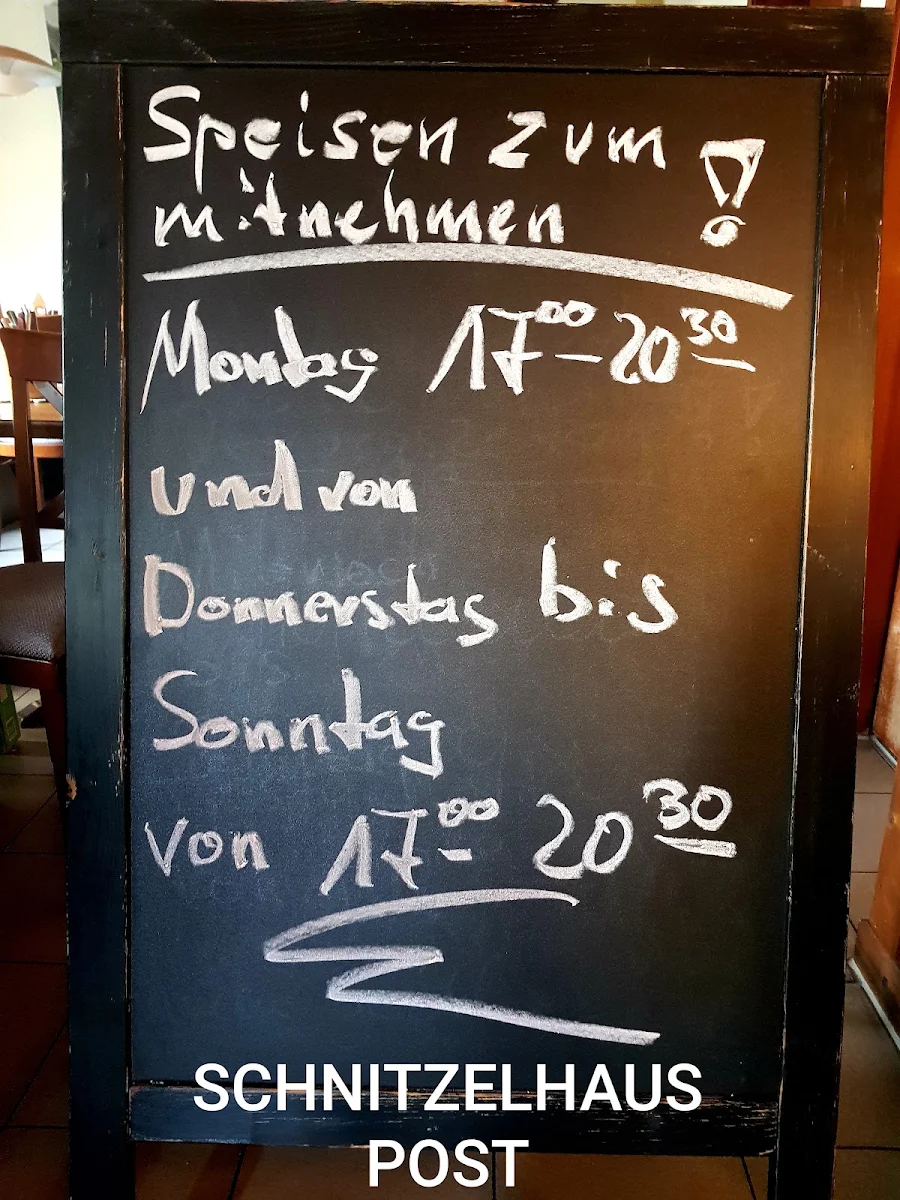 Speisen zum
mitnehmen !
Montag 17⁰⁰-20³⁰
und von
Donnerstag bis
Sonntag
von 17⁰⁰- 20³⁰
SCHNITZELHAUS
POST